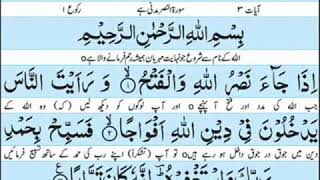 آیات ۳ سورۃ النصر مدنی ہے رکوع ۱
بِسْمِ اللهِ الرَّحْمٰنِ الرَّحِيْمِ
اللہ کے نام سے شروع جو نہایت مہربان ہمیشہ رحم فرمانے والا ہے
اِذَا جَآءَ نَصْرُ اللهِ وَ الْفَتْحُ ۱ وَ رَاَيْتَ النَّاسَ
جب اللہ کی مدد اور فتح آ پہنچے اور آپ لوگوں کو دیکھ لیں کہ وہ اللہ کے
يَدْخُلُوْنَ فِيْ دِيْنِ اللهِ اَفْوَاجًا ۲ فَسَبِّحْ بِحَمْدِ
دین میں جوق در جوق داخل ہو رہے ہیں تو آپ (تشکراً) اپنے رب کی حمد کے ساتھ تسبیح فرمائیں
رَبِّكَ وَ اسْتَغْفِرْهُ اِنَّهٗ كَانَ تَوَّابًا